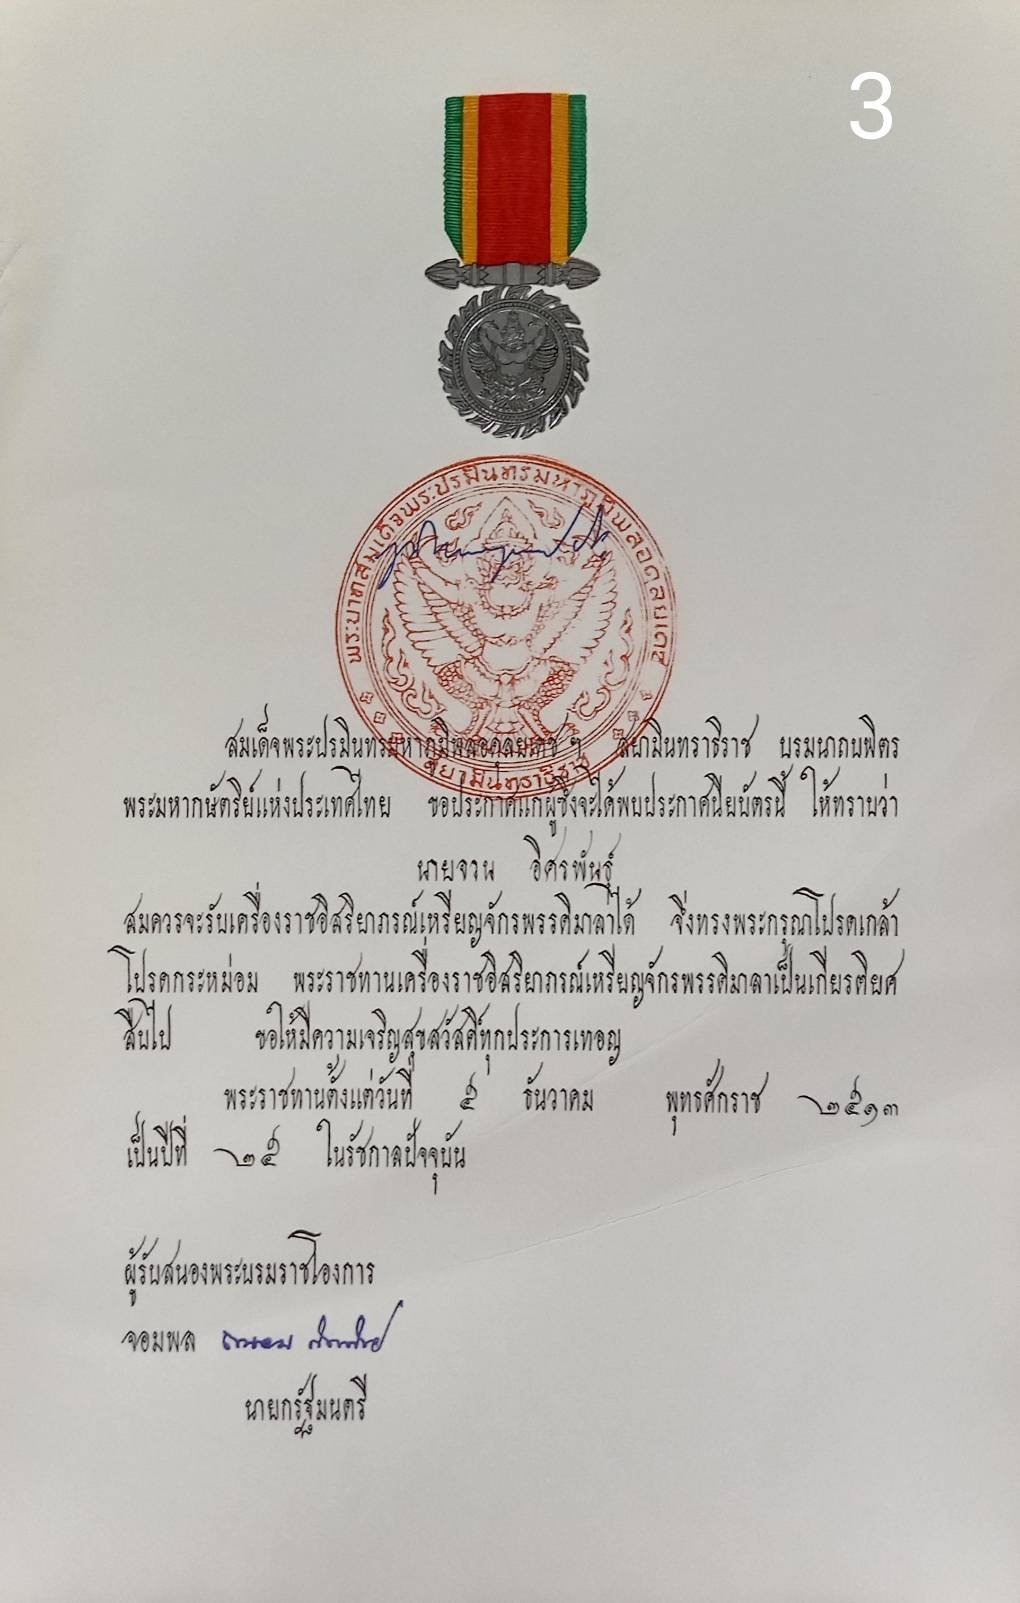 3
พระบาทสมเด็จพระปรมินทรมหาภูมิพลอดุลยเดช
สยามินทราธิราช
สมเด็จพระปรมินทรมหาภูมิพลอดุลยเดช ฯ สยามินทราธิราช บรมนาถบพิตร
พระมหากษัตริย์แห่งประเทศไทย ขอประกาศแก่ผู้ซึ่งจะได้พบประกาศนียบัตรนี้ ให้ทราบว่า
นายจวน อิศรพันธุ์
สมควรจะรับเครื่องราชอิสริยาภรณ์เหรียญจักรพรรดิมาลาได้ จึ่งทรงพระกรุณาโปรดเกล้า
โปรดกระหม่อม พระราชทานเครื่องราชอิสริยาภรณ์เหรียญจักรพรรดิมาลาเป็นเกียรติยศ
สืบไป ขอให้มีความเจริญสุขสวัสดิ์ทุกประการเทอญ
พระราชทานตั้งแต่วันที่ ๕ ธันวาคม พุทธศักราช ๒๕๑๓
เป็นปีที่ ๒๕ ในรัชกาลปัจจุบัน
ผู้รับสนองพระบรมราชโองการ
จอมพล
นายกรัฐมนตรี